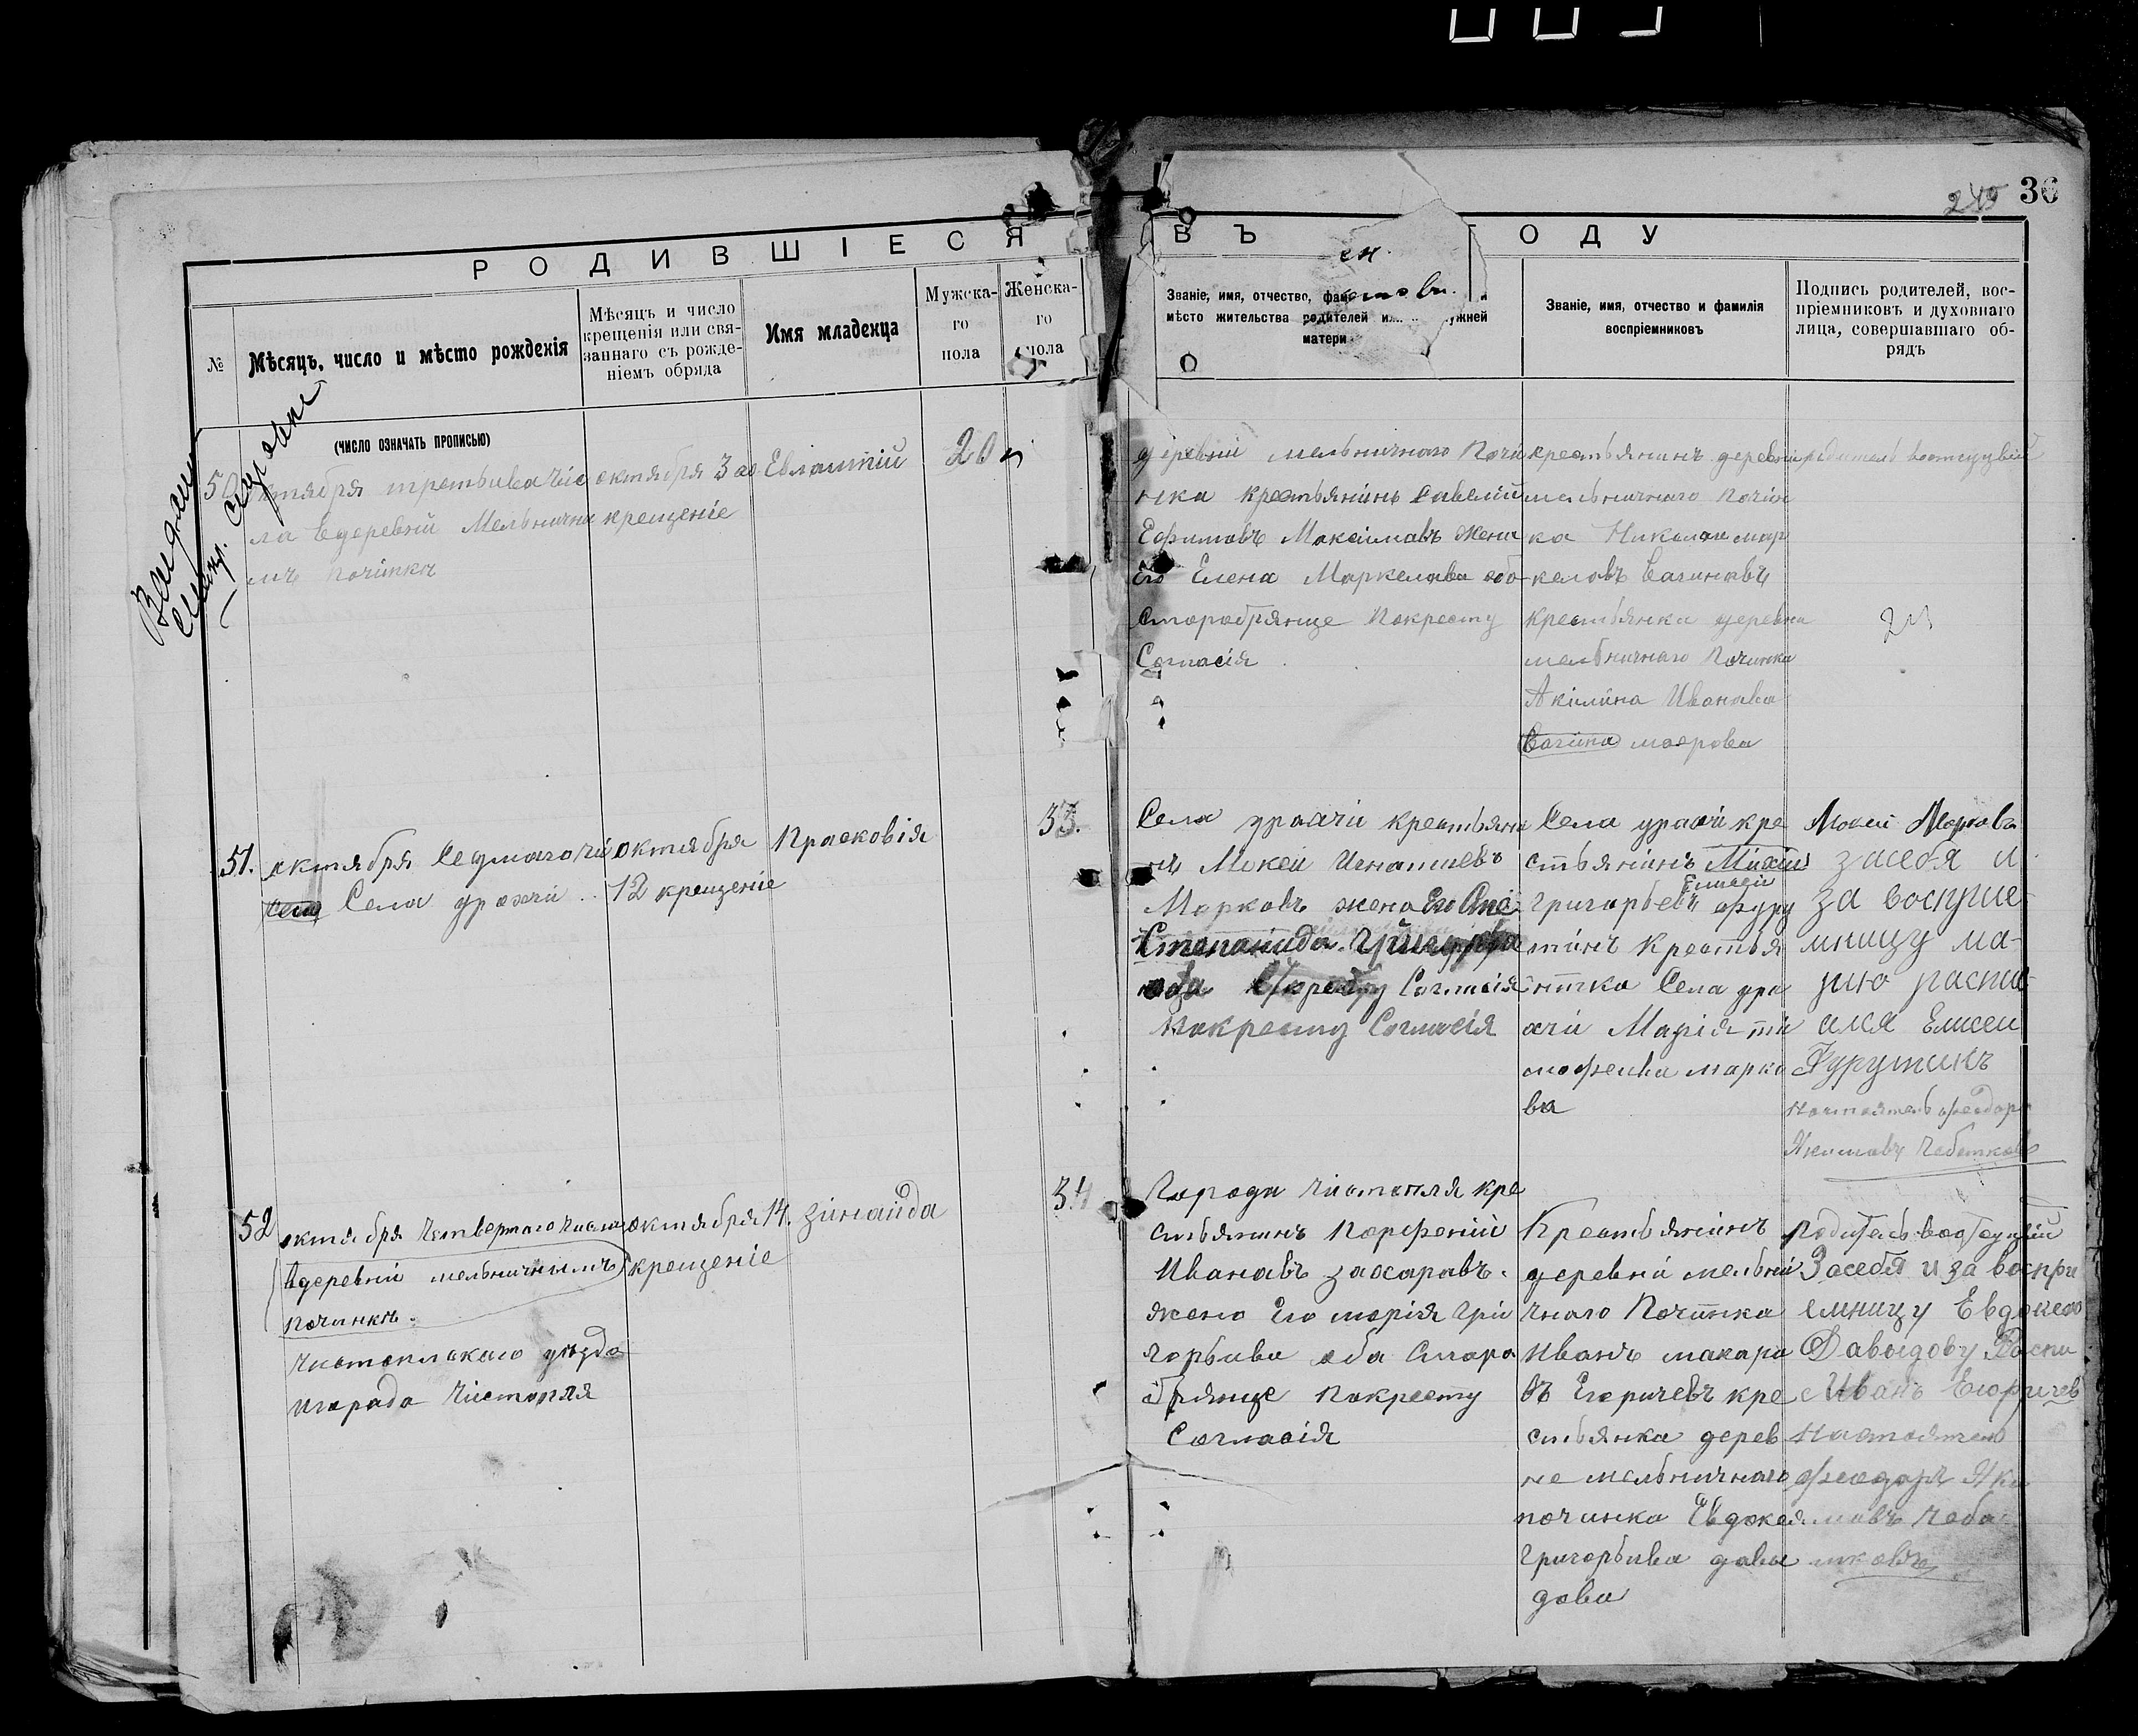 249 36
РОДИВШІЕСЯ
ВЪ ОДУ
№
Мѣсяцъ, число и мѣсто рожденія
Мѣсяцъ и число
крещенія или свя-
заннаго съ рожде-
ніемъ обряда
Имя младенца
Мужска-
го
пола
Женска-
го
пола
Званіе, имя, отчество,
мѣсто жительства родителей
матери
Званіе, имя, отчество и фамилія
воспріемниковъ
Подпись родителей, вос-
пріемниковъ и духовнаго
лица, совершавшаго об-
рядъ
(ЧИСЛО ОЗНАЧАТЬ ПРОПИСЬЮ)
50
октября третьива чис
ла вдеревни Мельнична
мъ починки
октября 3 го
крещеніе
Евлампій
20
деревни мельничнаго Почи
нка крестьянинъ Савелий
Ефимовъ Максимавъ жена
Его Елена Маркелава обо
старобрянце Покресту
Согласія
крестьянинъ деревни
мельничнаго почин
ка Николаи мар
келавъ вагинавъ
крестьянка деревни
мельничнаго Починка
Акилина Иванава
вагина
родитель
51.
октября Седмаго чи
Села урахчи
октября
12 крещеніе
Прасковія
33.
Села урахчи крестьяни
нъ Мокей Игнатиевъ
Марковъ жена Его
Степанида
оба Согласія
Покресту Согласія
Села урахчи кре
стьянинъ
Елисей
Григорьевъ фуру
тинъ крестья
нинка Села ура
хчи Марія ти
мофеива марко
ва
Мокей Марковъ
засебя и
за восприе-
мницу ма-
рию распис
ался Елисеи
Фурутинъ
Настоятель феодоръ
Якимавъ Чебатковъ
52
октября Четвертаго числа
вдеревни мельничнимъ
починки.
Чистопльскаго уѣзда
игорада Чистопля
октября 14.
крещеніе
зинаида
34
Города чистопля кре
стьянинъ Парфений
Иванавъ захаравъ.
жена Его марія Гри
горьива оба Стара
брянце Покресту
Согласія
Крестьянинъ
деревни мельни
чнаго Починка
Иванъ макара
въ Егоричевъ кре
стьянка дерев
не мельничнаго
починка Евдокея
григорьива давы
дава
родитель
Засебя и за воспри
емницу Евдокею
Давыдову Распи
Иванъ Егоричев
Настоятель
феодоръ Яки
мавъ чеба
тковъ